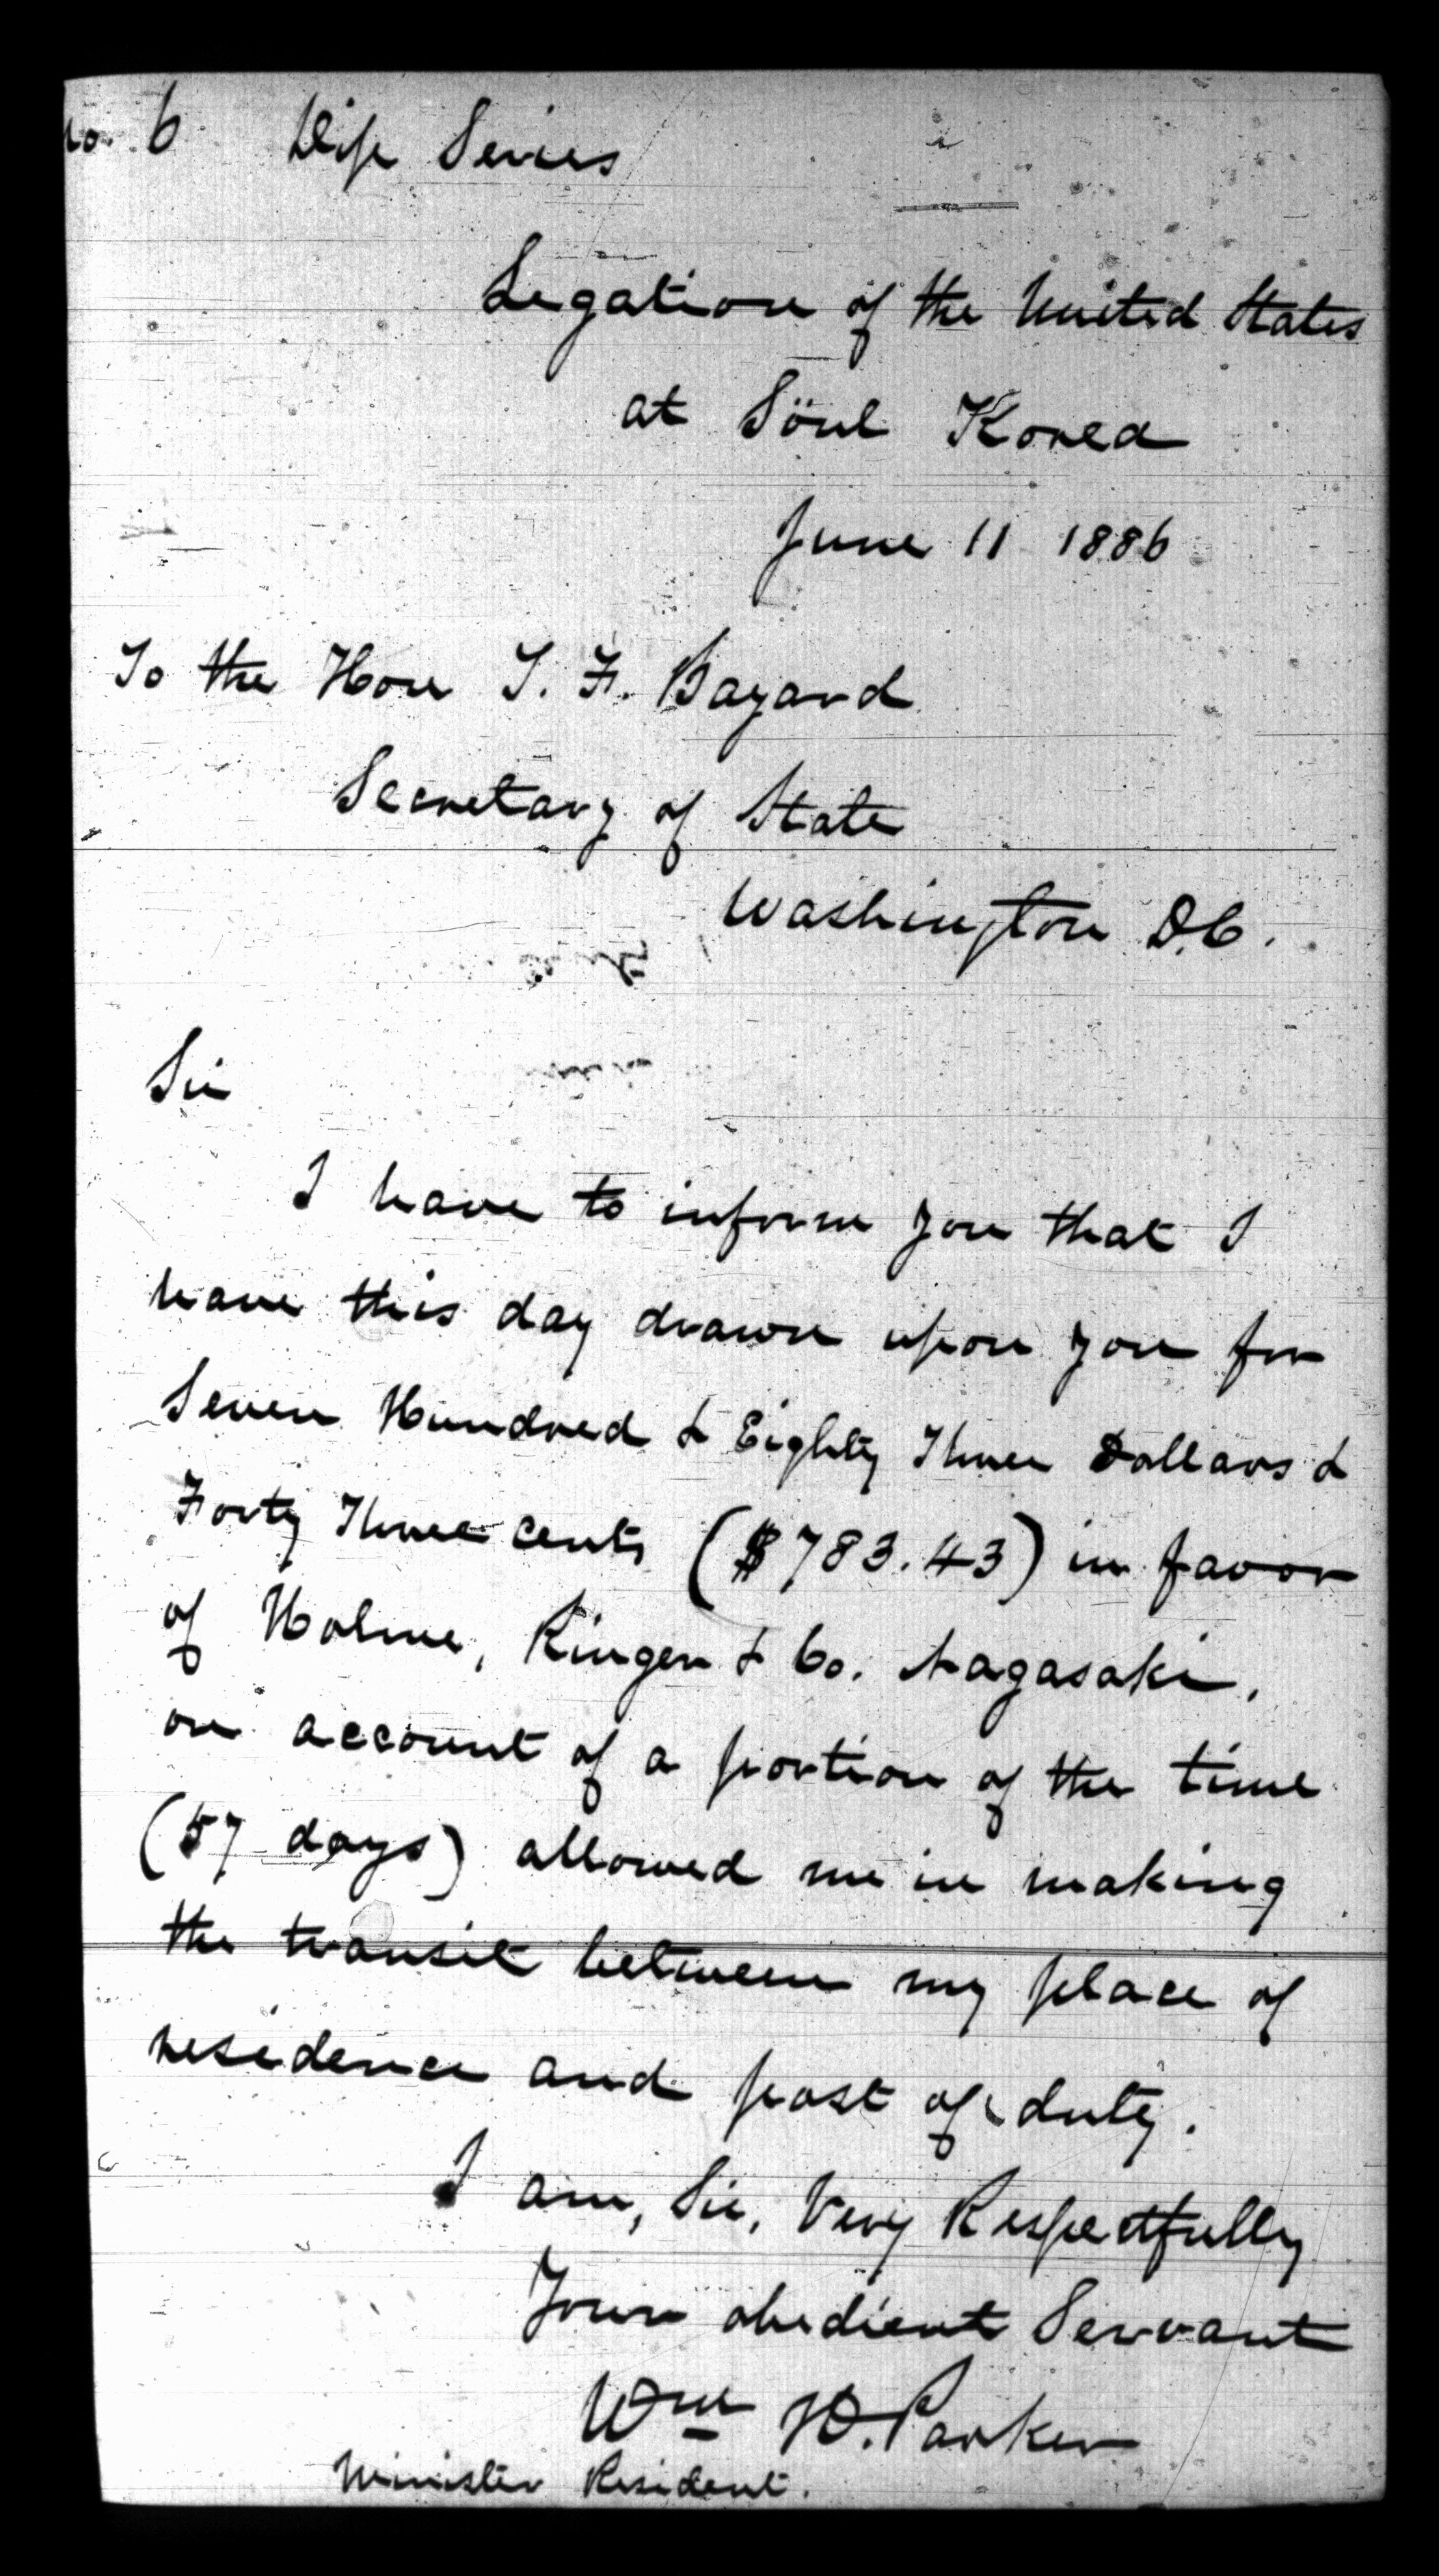 No. 6 Dip Series
Legation of the United States
at Söul Korea
June 11 1886
To the Hon T. F. Bayard
Secretary of State
Washington D.C.
Sir
I have to inform you that I
have this day drawn upon you for
Seven Hundred & Eighty Three Dollars &
Forty Three cents ($783.43) in favor
of Holme, Ringer & Co. Nagasaki,
on account of a portion of the time
(57 days) allowed me in making
the transit between my place of
residence and post of duty.
I am, Sir, Very Respectfully
Your obedient Servant
Wm H. Parker
Minister Resident.